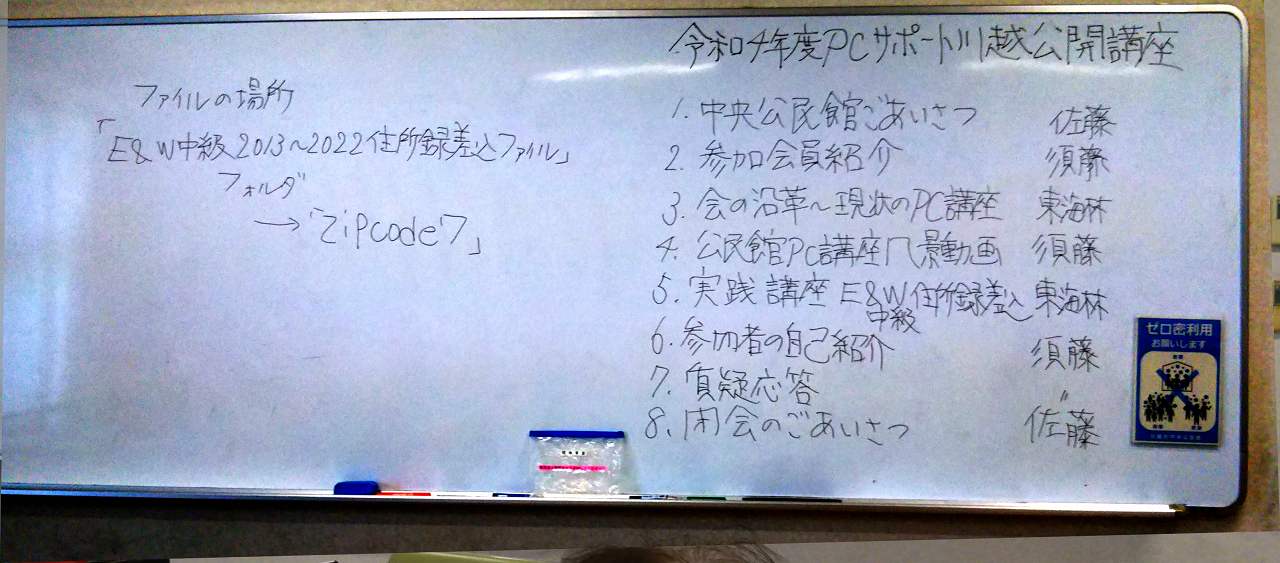 ファイルの場所
「E&W中級2013～2022住所録差込ファイル」
フォルダ
→「zipcode7」
令和4年度PCサポート川越公開講座
1. 中央公民館ごあいさつ 佐藤
2. 参加会員紹介 須藤
3. 会の沿革～現状のPC講座 東海林
4. 公民館PC講座風景動画 須藤
5. 実践講座 E&W中級住所録差込 東海林
6. 参加者の自己紹介 須藤
7. 質疑応答 〃
8. 閉会のごあいさつ 佐藤
ゼロ密利用
お願いします